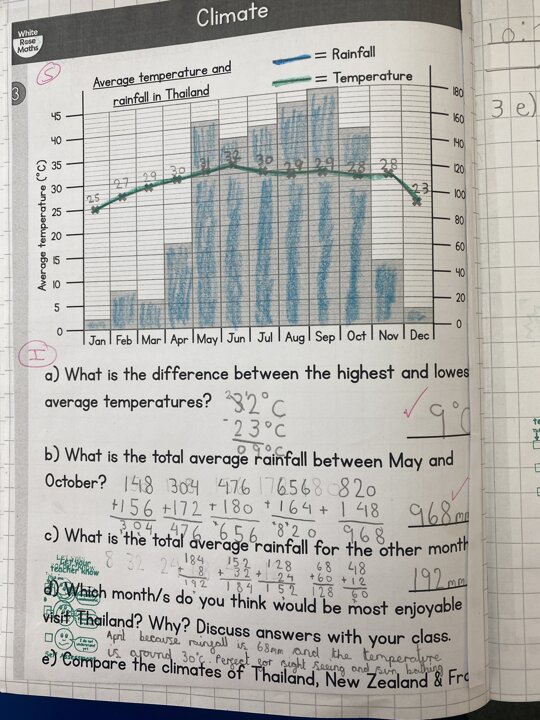 Climate
White
Rose
Maths
S
3
Average temperature and
rainfall in Thailand
= Rainfall
= Temperature
Average temperature (°C)
45
40
35
30
25
20
15
10
5
0
180
160
140
120
100
80
60
40
20
0
25 27 29 30 31 32 30 29 29 28 28 23
Jan Feb Mar Apr May Jun Jul Aug Sep Oct Nov Dec
I
a) What is the difference between the highest and lowes
average temperatures?
32°C
- 23°C
09°C
9°C
b) What is the total average rainfall between May and
October?
148 304 476 656 820
+156 +172 +180 +164 + 148
304 476 656 820 968
968mm
c) What is the total average rainfall for the other month
8 32 24
184 152 128 68 48
+ 8 + 32 + 24 +60 +12
192 184 152 128 60
192mm
d) Which month/s do you think would be most enjoyable
visit Thailand? Why? Discuss answers with your class.
April because rainfall is 68mm and the temperature
is around 30°c. Perfect for sight seeing and sun bathing
e) Compare the climates of Thailand, New Zealand & Fra
10:
3 e)